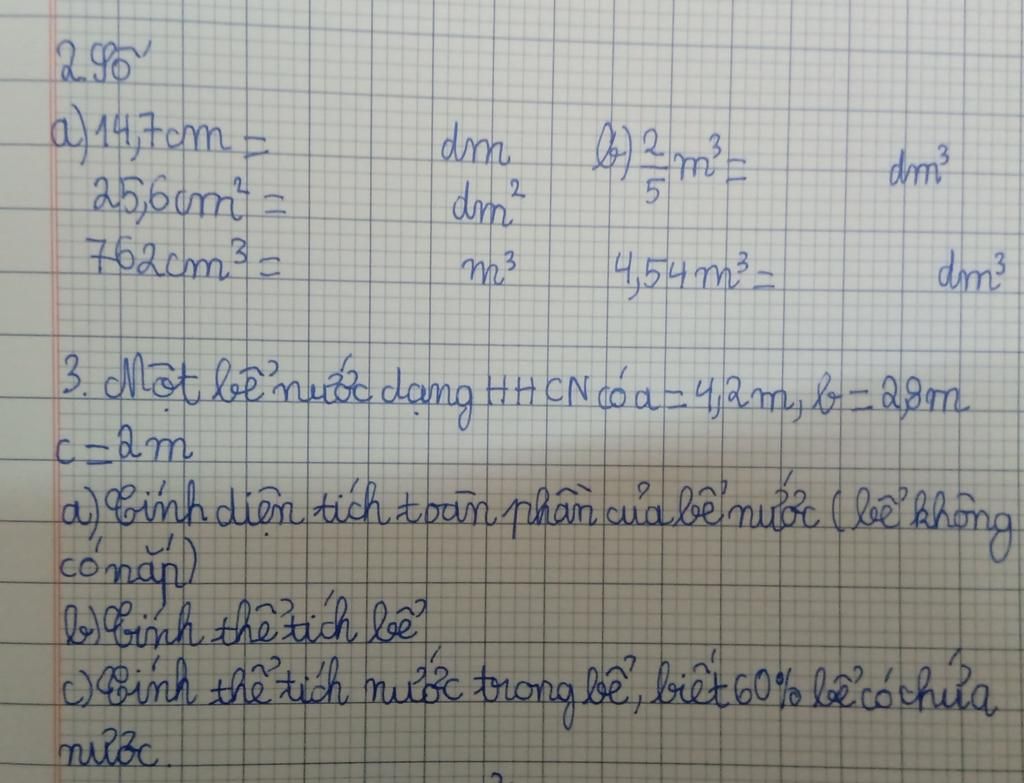 2. Số
a) 14,7cm = dm b) 2/5 m³ = dm³
25,6cm² = dm²
762cm³ = m³ 4,54m³ = dm³
3. Một bể nước dạng HHCN có a = 4,2m, b = 2,8m
c = 2m
a) Tính diện tích toàn phần của bể nước (bể không
có nắp)
b) Tính thể tích bể
c) Tính thể tích nước trong bể, biết 60% bể có chứa
nước.